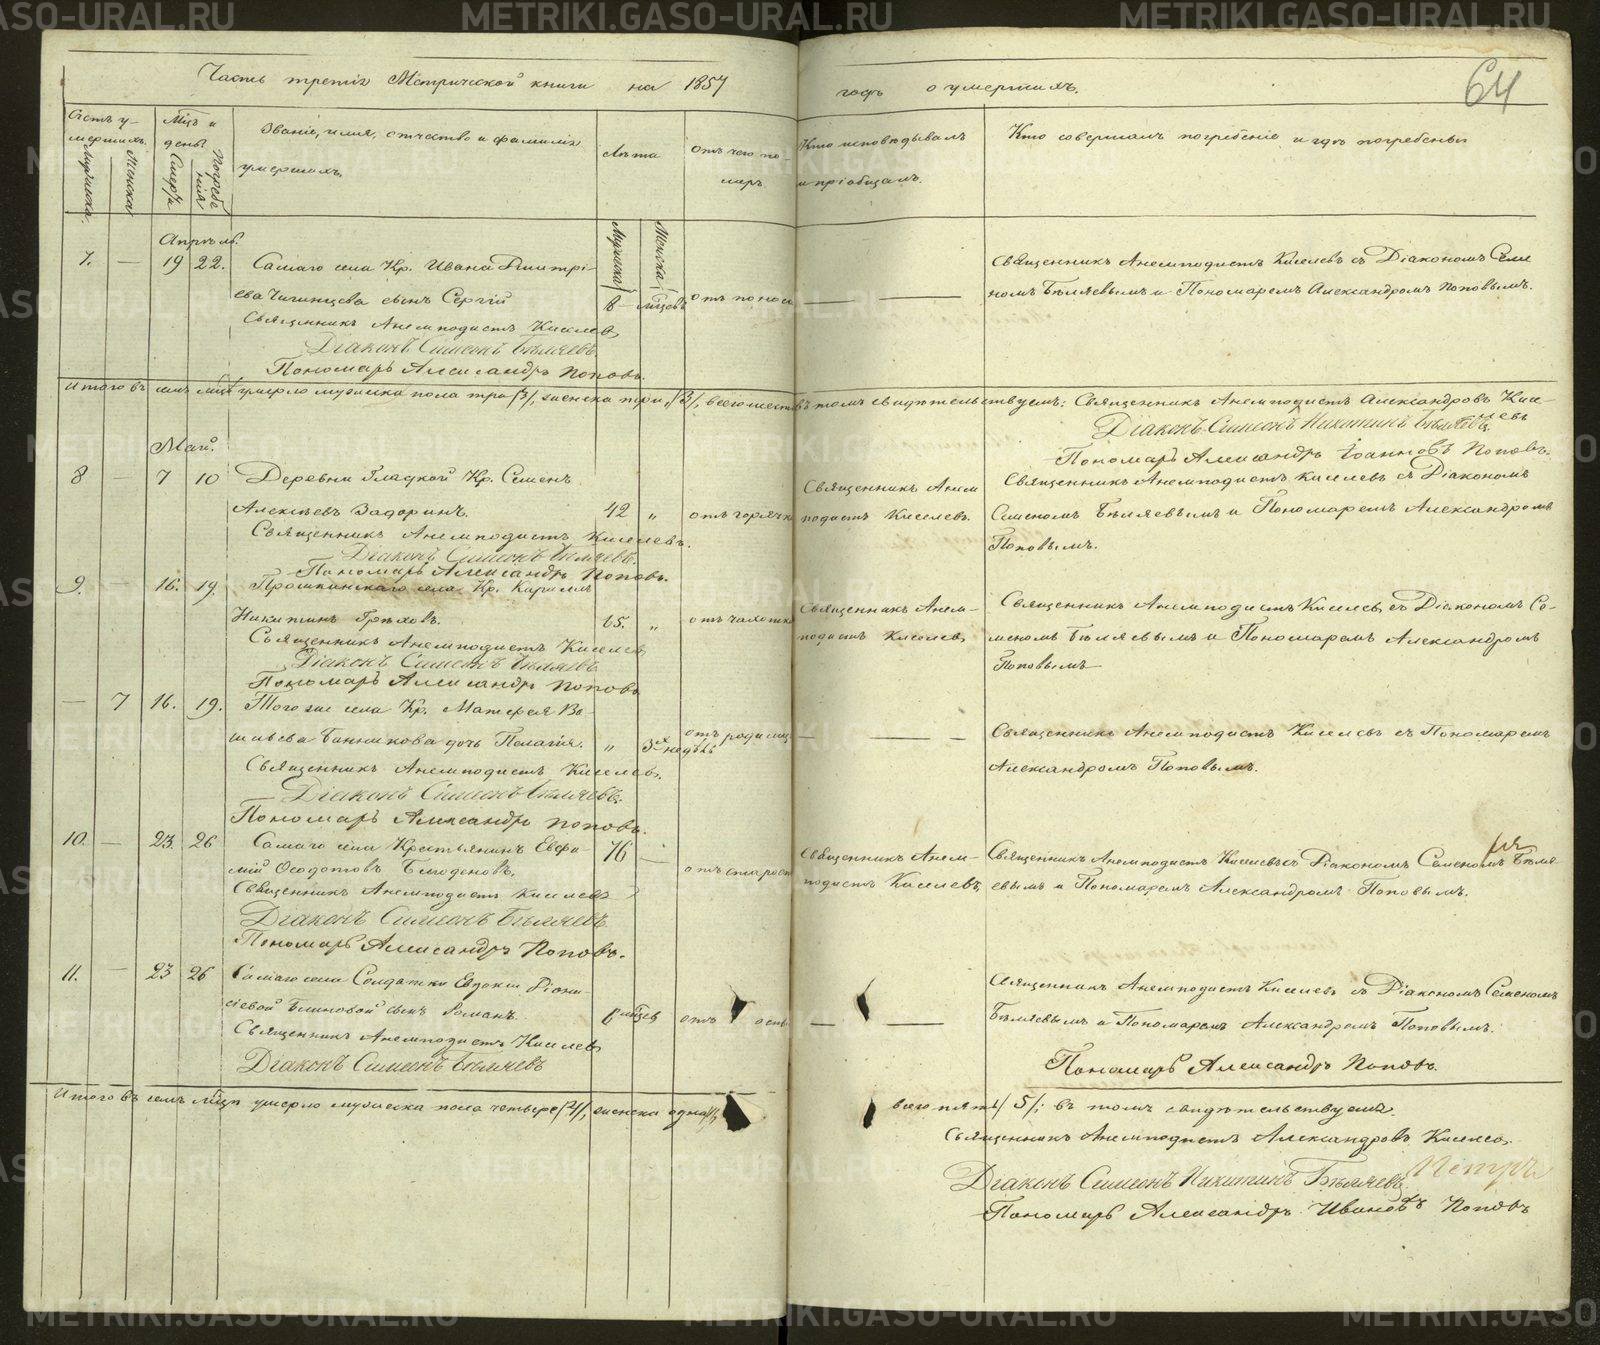 Часть третія Метрической книги на 1857 годъ о умершихъ.
64
Счетъ умершихъ.
Мужеска.
Женска
Мѣсяцъ и день.
Смерти
Погребенія
Званіе, имя, отчество и фамилія
умершихъ.
Лѣта
Мужеска
Женска
Отъ чего по-
меръ.
Кто исповѣдывалъ
и пріобщалъ.
Кто совершалъ погребеніе и гдѣ погребены
Апрѣль.
7. — 19 22. Самаго села Кр. Ивана Дмитрі-
ева сынъ Сергій
Священникъ Анемподистъ Киселевъ
Діаконъ Симеонъ Бѣляевъ
Пономарь Александръ Поповъ.
отъ поноса
Священникъ Анемподистъ Киселевъ съ Діакономъ Семе
номъ Бѣляевымъ и Пономаремъ Александромъ Поповымъ.
Итого въ семъ мѣсяцѣ умерло мужеска пола три /3/, женска три /3/, всего шесть въ томъ свидѣтельствуемъ: Священникъ Анемподистъ Александровъ Кисе-
левъ
Діаконъ Симеонъ Никитинъ Бѣляевъ
Пономарь Александръ Іоанновъ Поповъ.
Май.
8 — 7 10 Деревни Гладкой Кр. Семенъ
Алексѣевъ Задоринъ. 42 „ отъ горячки
Священникъ Анемподистъ Киселевъ.
Діаконъ Симеонъ Бѣляевъ.
Пономарь Александръ Поповъ.
Священникъ Анем
подистъ Киселевъ.
Священникъ Анемподистъ Киселевъ съ Діакономъ
Семеномъ Бѣляевымъ и Пономаремъ Александромъ
Поповымъ.
9. — 16. 19. села Кр. Кириллъ
Никитинъ Грѣховъ. „ отъ чахотки
Священникъ Анемподистъ Киселевъ
Діаконъ Симеонъ Бѣляевъ
Пономарь Александръ Поповъ
Священникъ Анем-
подистъ Киселевъ
Священникъ Анемподистъ Киселевъ съ Діакономъ Се-
меномъ Бѣляевымъ и Пономаремъ Александромъ
Поповымъ
— 7 16. 19. Того же села Кр. Матфея Ва-
сильева Банникова дочь Пелагія. „ 3 недѣль отъ родимца
Священникъ Анемподистъ Киселевъ.
Діаконъ Симеонъ Бѣляевъ.
Пономарь Александръ Поповъ.
Священникъ Анемподистъ Киселевъ съ Пономаремъ
Александромъ Поповымъ.
10. — 23. 26 Самаго села Крестьянинъ Евфи-
мій Ѳеодотовъ 76 — отъ старости
Священникъ Анемподистъ Киселевъ
Діаконъ Симеонъ Бѣляевъ
Пономарь Александръ Поповъ.
Священникъ Анем-
подистъ Киселевъ
Священникъ Анемподистъ Киселевъ съ Діакономъ Семеномъ Бѣля-
евымъ и Пономаремъ Александромъ Поповымъ.
11. — 23 26 Самаго села Солдатки Евдокіи Діони-
сіевой Блиновой сынъ Романъ. отъ оспы
Священникъ Анемподистъ Киселевъ
Діаконъ Симеонъ Бѣляевъ
Священникъ Анемподистъ Киселевъ съ Діакономъ Семеномъ
Бѣляевымъ и Пономаремъ Александромъ Поповымъ.
Пономарь Александръ Поповъ.
Итого въ семъ мѣсяцѣ умерло мужеска пола четыре /4/, женска одна /1/, всего пять /5/; въ томъ свидѣтельствуемъ.
Священникъ Анемподистъ Александровъ Киселевъ.
Діаконъ Симеонъ Никитинъ Бѣляевъ
Пономарь Александръ Ивановъ Поповъ
METRIKI.GASO-URAL.RU